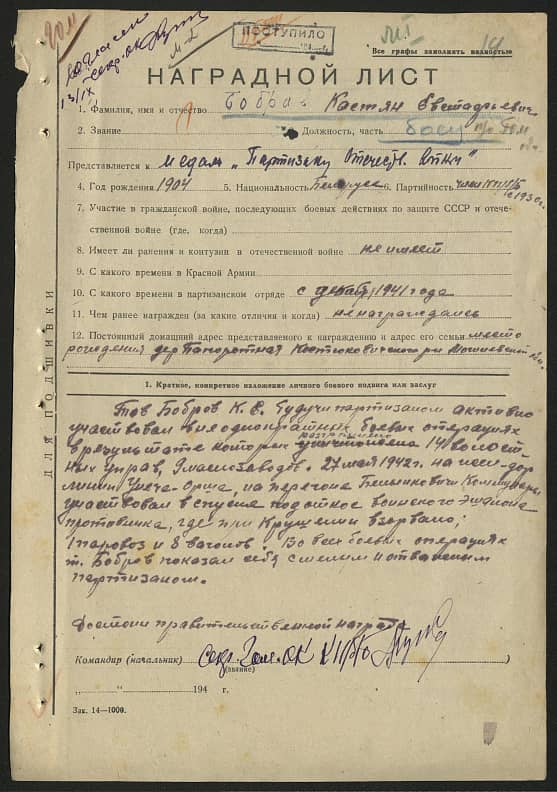 ПОСТУПИЛО
Все графы заполнять полностью
НАГРАДНОЙ ЛИСТ
1. Фамилия, имя и отчество Бобров Кастян
2. Звание Должность, часть
Представляется к медали „Партизану Отечеств. войны"
4. Год рождения 1904 5. Национальность Белорус 6. Партийность
7. Участие в гражданской войне, последующих боевых действиях по защите СССР и отече-
ственной войне (где, когда)
8. Имеет ли ранения и контузии в отечественной войне не имеет
9. С какого времени в Красной Армии
10. С какого времени в партизанском отряде с декабря 1941 года
11. Чем ранее награжден (за какие отличия и когда) не награждались
12. Постоянный домашний адрес представляемого к награждению и адрес его семьи место
рождения дер. Папоротная Костюковичского р-н
ДЛЯ ПОДШИВКИ
1. Краткое, конкретное изложение личного боевого подвига или заслуг
Тов Бобров К. Е. будучи партизаном активно
участвовал в неоднократных боевых операциях
в результате которых разгромлено 14 волост-
ных управ, 27 мая 1942 г. на
линии Унеча-Орша, на перегоне Коммунары
участвовал в спуске под откос воинского эшелона
противника, где при крушении взорвано;
1 паровоз и 8 вагонов. Во всех боевых операциях
т. Бобров показал себя смелым и отважным
партизаном.
Достоин правительственной награды
Командир (начальник) Секр. Гом. ОК КП(б)Б
(звание)
„ “ 194 г.
Зак. 14—1000.